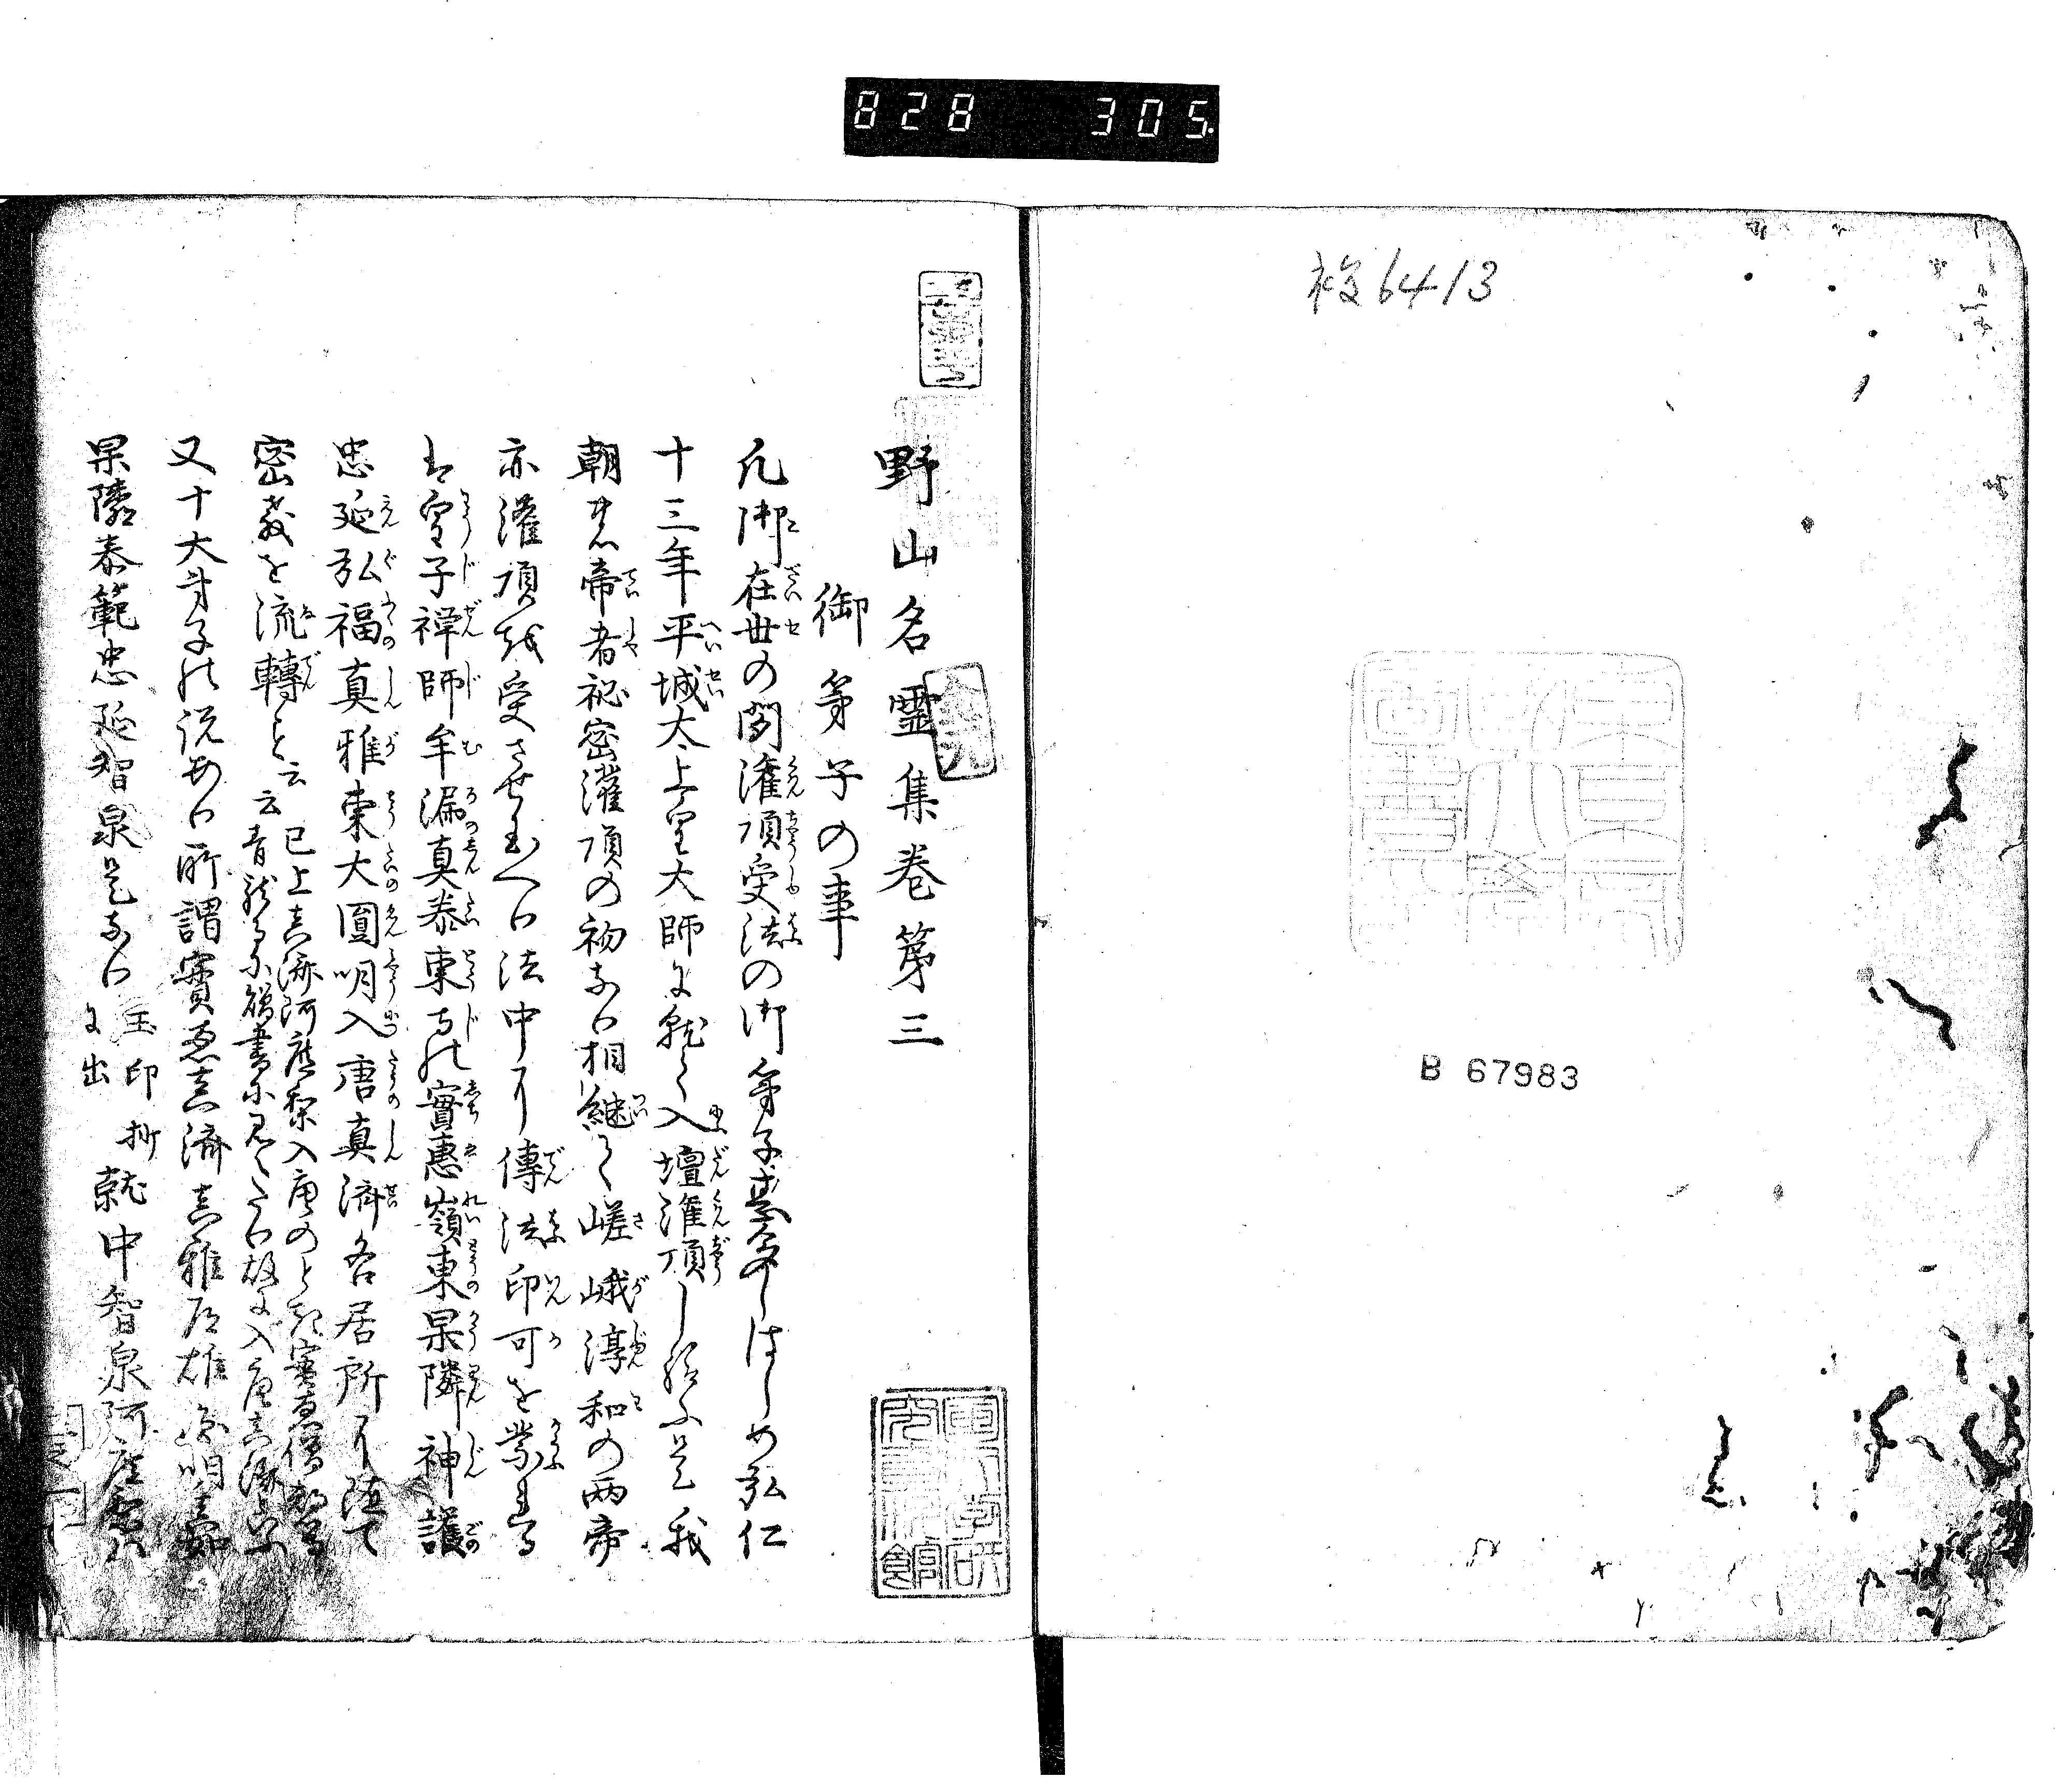 828 305
複6413
B 67983
野山名霊集巻第三
御弟子の事
凡御在世の間灌頂受法の御弟子甚多しはしめ弘仁
十三年平城太上皇大師に就て入壇灌頂し給ふ是我
朝の帝者秘密灌頂の初なり相継て嵯峨淳和の両帝
亦灌頂を受させ玉へり法中に傳法印可を蒙る
皇子禅師牟漏真泰東寺の實惠嶺東杲隣神護
忠延弘福真雅東大圓明入唐真済各居所に随て
密教を流轉と云云
已上真済阿闍梨入唐のとき實恵僧都
青龍寺に贈書に見へたり故に入唐真済と云
又十大弟子の説あり所謂實恵真済真雅道雄圓明真如
杲隣泰範忠延智泉是なり
玉印抄
に出
就中智泉阿闍梨ハ